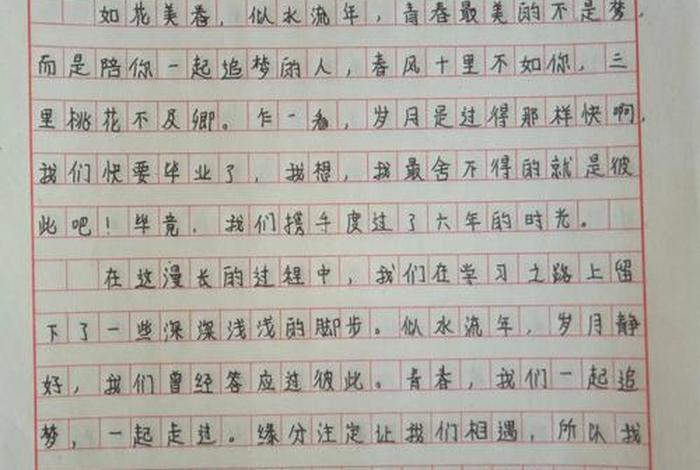 如花美春，似水流年，青春最美的不是梦，
而是陪你一起追梦的人，春风十里不如你，三
里桃花不及卿。乍一看，岁月是过得那样快啊，
我们快要毕业了，我想，我最舍不得的就是彼
此吧！毕竟，我们携手度过了六年的时光。
在这漫长的过程中，我们在学习之路上留
下了一些深深浅浅的脚步。似水流年，岁月静
好，我们曾经答应过彼此。青春，我们一起追
梦，一起走过。缘分注定让我们相遇，所以我